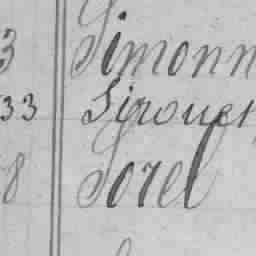 3 Simonn
33 Sirouet
8 Sorel